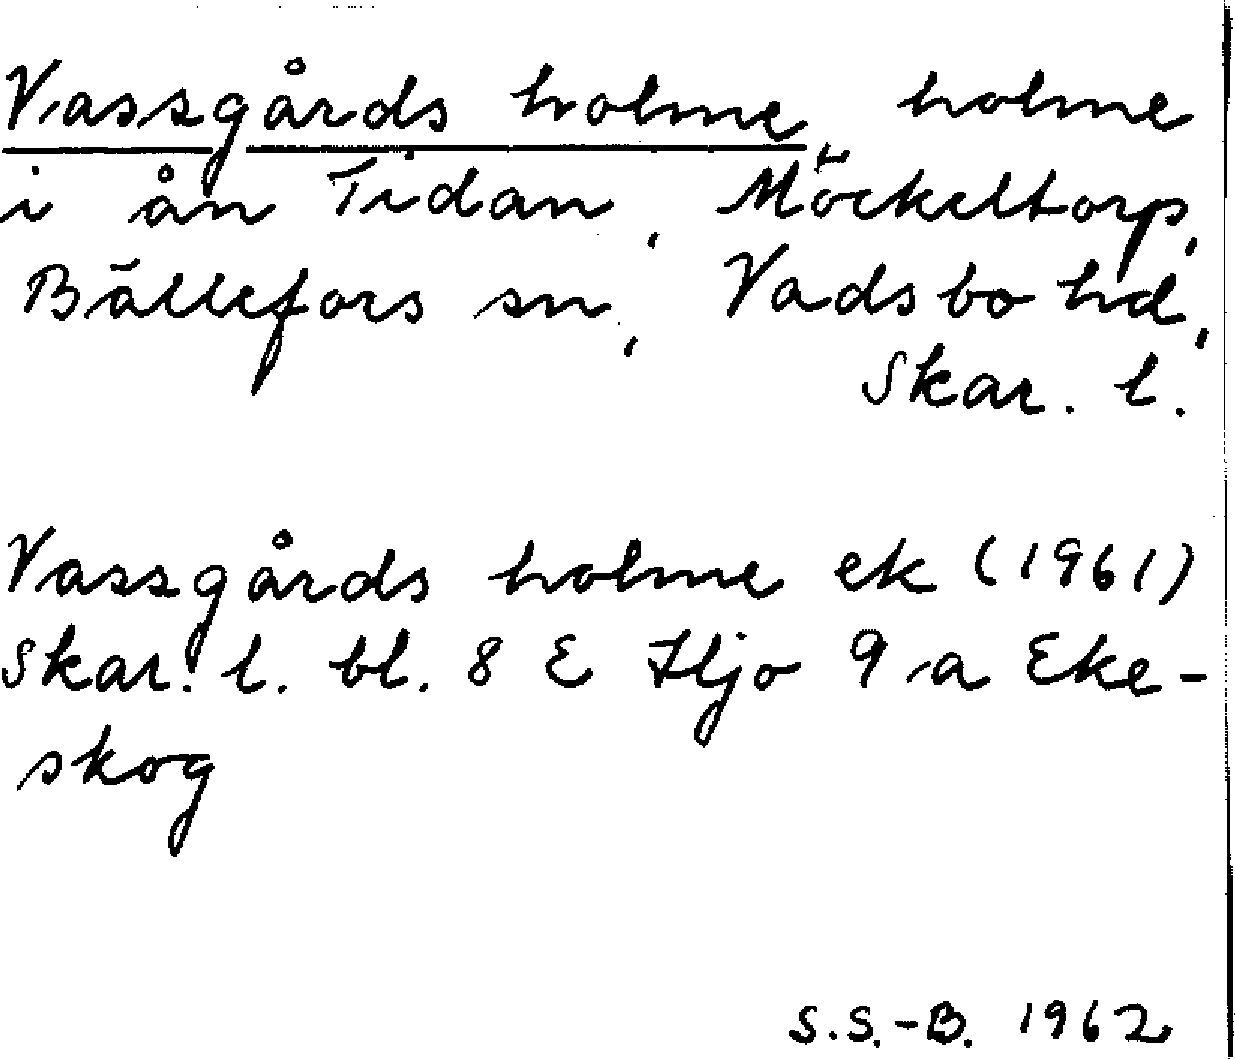 Vassgårds holme, holme
i ån Tidan, Möckeltorp,
Bällefors sn, Vadsbo hd,
Skar. l.
Vassgårds holme ek (1961)
Skar. l. bl. 8 E Hjo 9 a Eke-
skog
S.S.-B. 1962